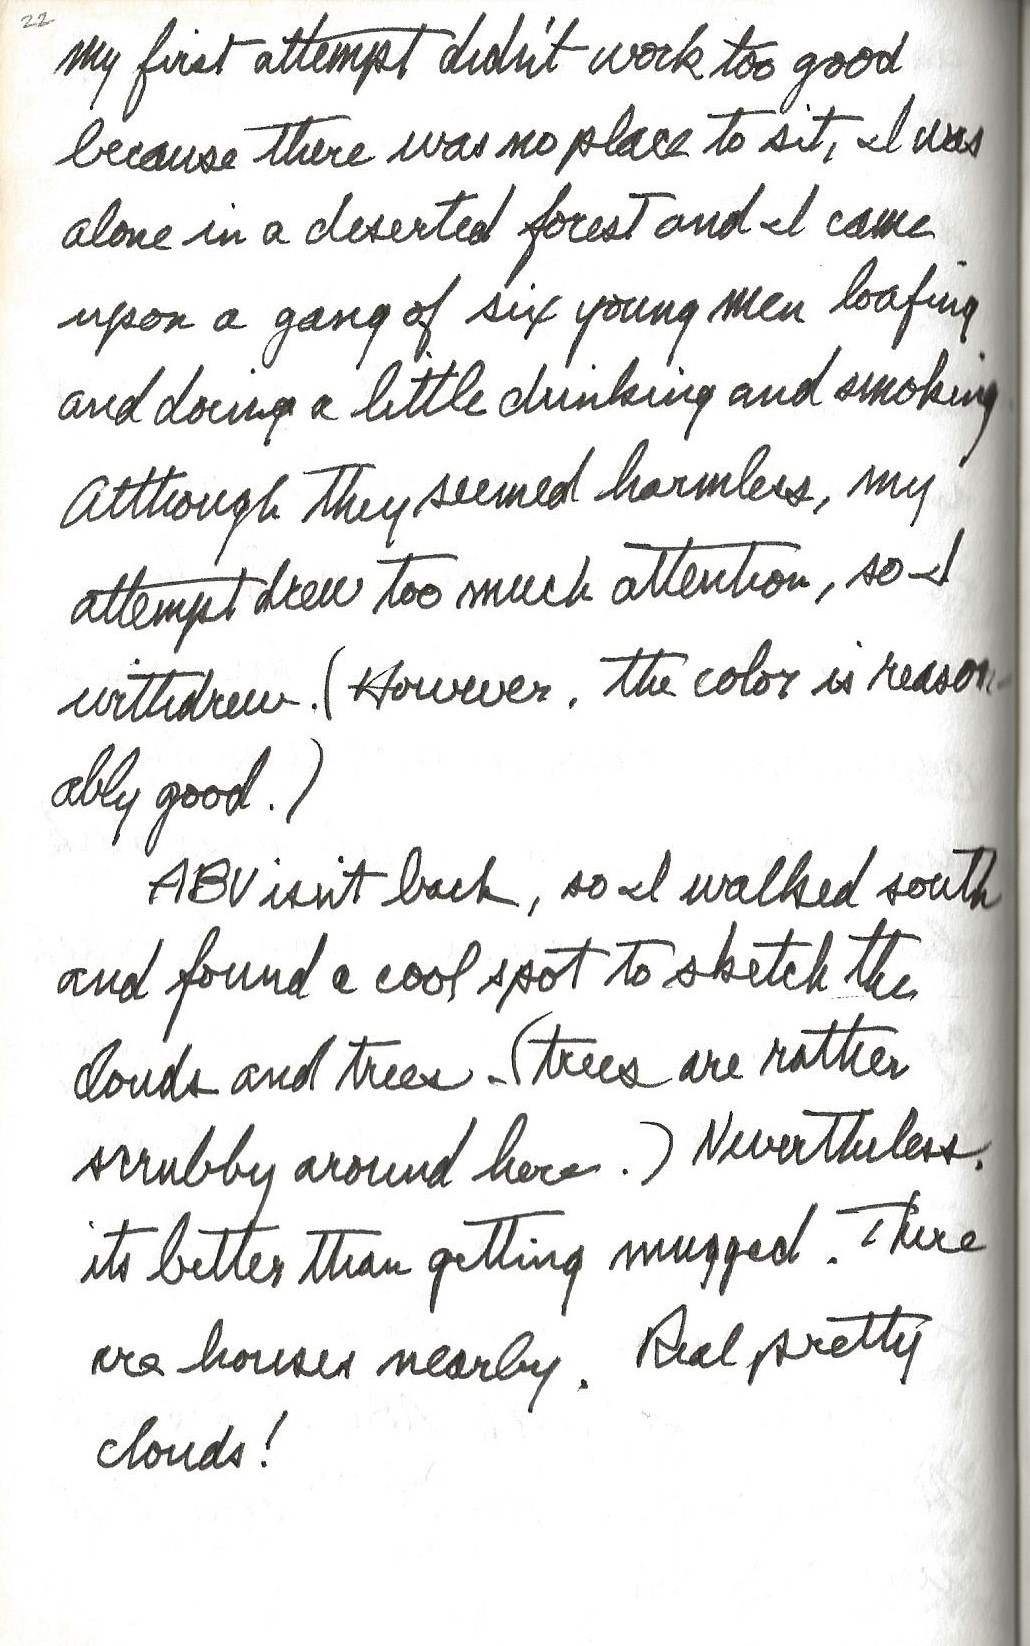 22
My first attempt didn't work too good
because there was no place to sit, I was
alone in a deserted forest and I came
upon a gang of six young men loafing
and doing a little drinking and smoking
Although they seemed harmless, my
attempt drew too much attention, so I
withdrew. (However, the color is reason-
ably good.)
ABV isn't back, so I walked south
and found a cool spot to sketch the
clouds and trees - (trees are rather
scrubby around here.) Nevertheless,
its better than getting mugged. There
are houses nearby. Real pretty
clouds!